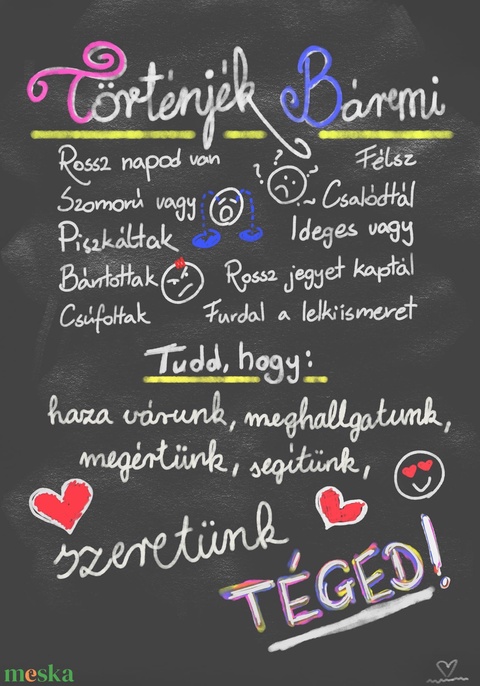 Történjék Bármi
Rossz napod van
Szomorú vagy
Piszkáltak
Bántottak
Csúfoltak
? ? ?
Félsz
Csalódtál
Ideges vagy
Rossz jegyet kaptál
Furdal a lelkiismeret
Tudd, hogy:
haza várunk, meghallgatunk,
megértünk, segítünk,
szeretünk
TÉGED!
meska